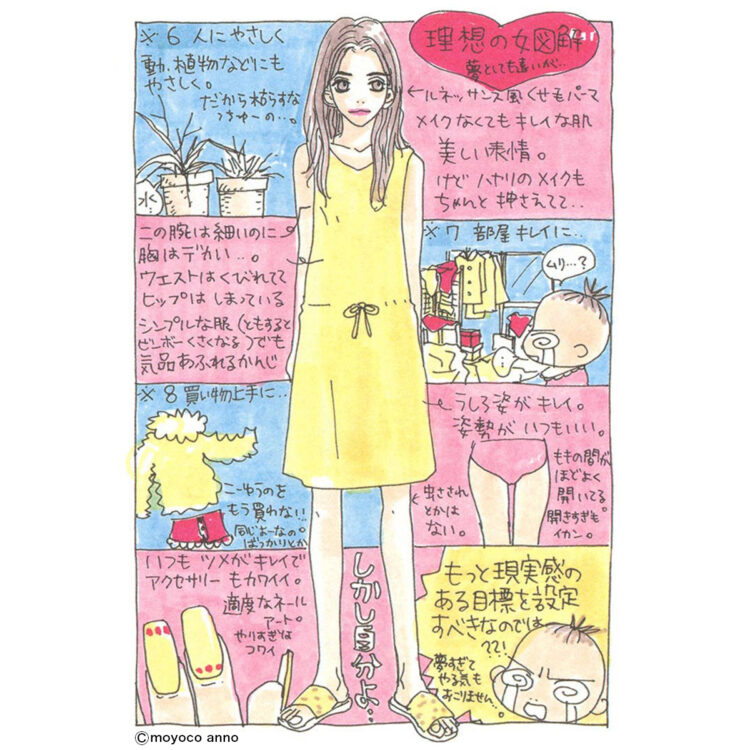 理想の女図解
夢としても遠いが…
※6 人にやさしく
動、植物などにも
やさしく。
だから枯らすな
っちゅーの…。
水
←ルネッサンス風くせ毛パーマ
メイクなくてもキレイな肌
美しい表情。
けど ハヤリのメイクも
ちゃんと押さえてて‥
二の腕は細いのに
胸はデカい‥。
ウエストはくびれてて
ヒップは しまっている
シンプルな服(ともすると
ビンボーくさくなる)でも
気品あふれるかんじ
※7 部屋キレイに…
ムリ…?
※8 買い物上手に…
こーゆうのを
もう買わない!!
同じよーなの。
ばっかりとか
うしろ姿がキレイ。
姿勢がいつもいい。
ももの間が
ほどよく
開いてる。
開きすぎも
イカン。
←虫さされ
とかは
ない。
いつも ツメがキレイで
アクセサリーもカワイイ。
適度なネール
アート。
やりすぎは
コワイ
しかし自分よ‥
もっと現実感の
ある目標を設定
すべきなのでは
??!
夢すぎて
やる気も
おこりません…
©moyoco anno